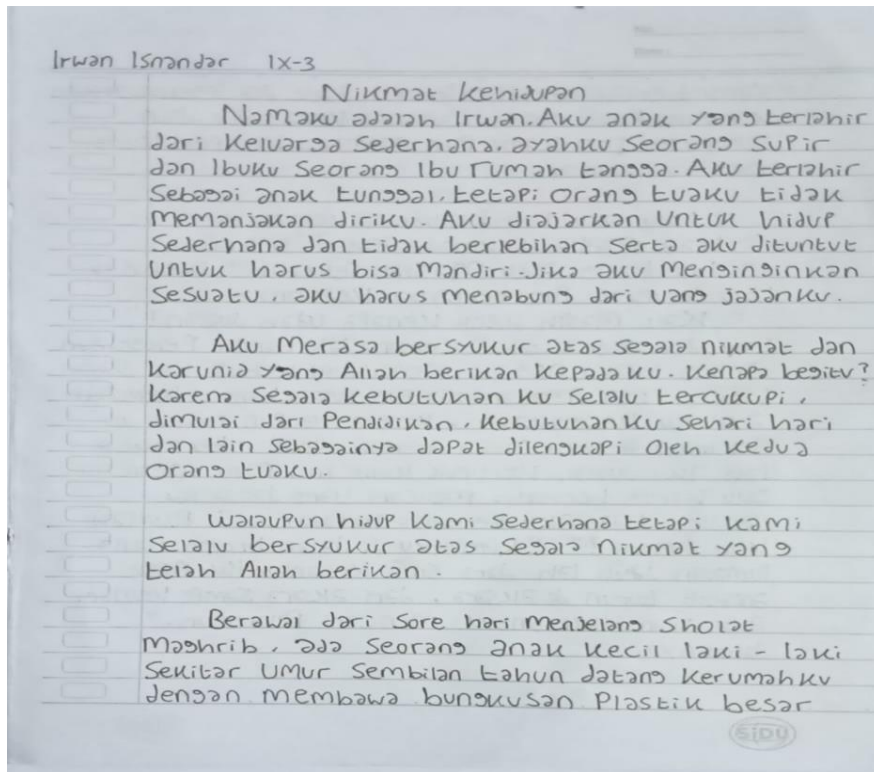 Irwan Isnandar IX-3
Nikmat kehidupan
Namaku adalah Irwan. Aku anak yang terlahir
dari Keluarga Sederhana, ayahku Seorang Supir
dan Ibuku Seorang Ibu rumah tangga. Aku terlahir
Sebagai anak tunggal, tetapi Orang tuaku tidak
Memanjakan diriku. Aku diajarkan Untuk hidup
Sederhana dan tidak berlebihan Serta aku dituntut
Untuk harus bisa Mandiri. Jika aku Menginginkan
Sesuatu, aku harus Menabung dari uang jajanku.
Aku Merasa bersyukur atas segala nikmat dan
Karunia yang Allah berikan Kepada ku. Kenapa begitu?
Karena Segala Kebutuhan ku Selalu tercukupi,
dimulai dari Pendidikan, Kebutuhan ku Sehari hari
dan lain Sebagainya dapat dilengkapi Oleh Kedua
Orang tuaku.
Walaupun hidup Kami Sederhana tetapi Kami
Selalu bersyukur atas Segala nikmat yang
telah Allah berikan.
Berawal dari Sore hari Menjelang Sholat
Maghrib, ada Seorang anak Kecil laki - laki
Sekitar Umur Sembilan tahun datang Kerumahku
dengan Membawa bungkusan Plastik besar
SIDU